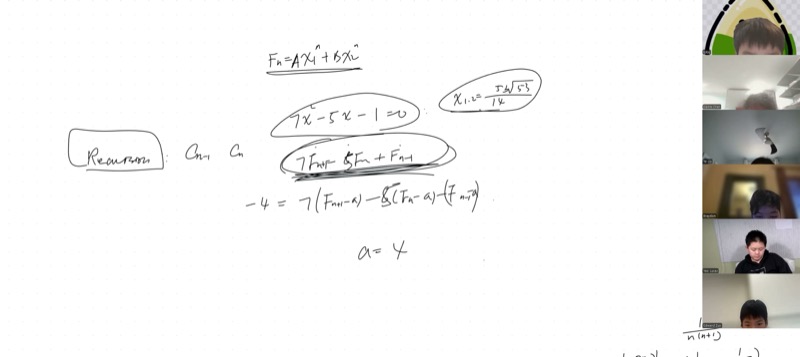 Fn = Ax₁ⁿ + Bx₂ⁿ
7x² - 5x - 1 = 0
x₁.₂ = 5±√53 / 14
Recursion : Cn-1 Cn
7Fn+1 - 5Fn + Fn-1
-4 = 7(Fn+1 - a) - 5(Fn - a) - (Fn-1 a)
a = 4
1 / n(n+1)